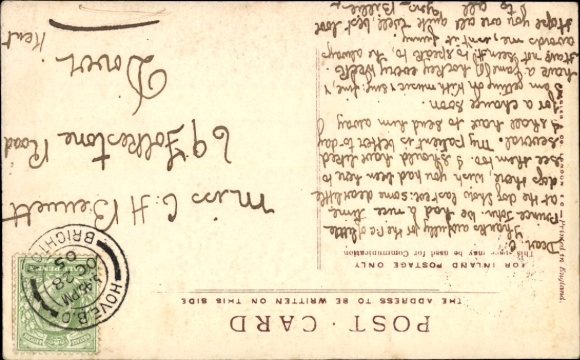 POST - CARD
THE ADDRESS TO BE WRITTEN ON THIS SIDE
FOR INLAND POSTAGE ONLY
This space may be used for Communication
Dear C.
Thanks awfully for the PC of little
Prince John. We had a nice time
at the dog show last week: some dear little
dogs there wish you had been here to
see them too. I should have liked
several. My patient is better to-day
I shall have to send him away
for a change soon
am getting on with music &
have a game of hockey every week.
have not seen to speak to, he always
avoids me, isn't it funny
Hope you are all quite well, best love
to all
Miss C. H. Bennett
69 Folkestone Road
Dover
Kent
HOVE B.O.
BRIGHTON
1.45 PM
OC 28
05
Printed in England.